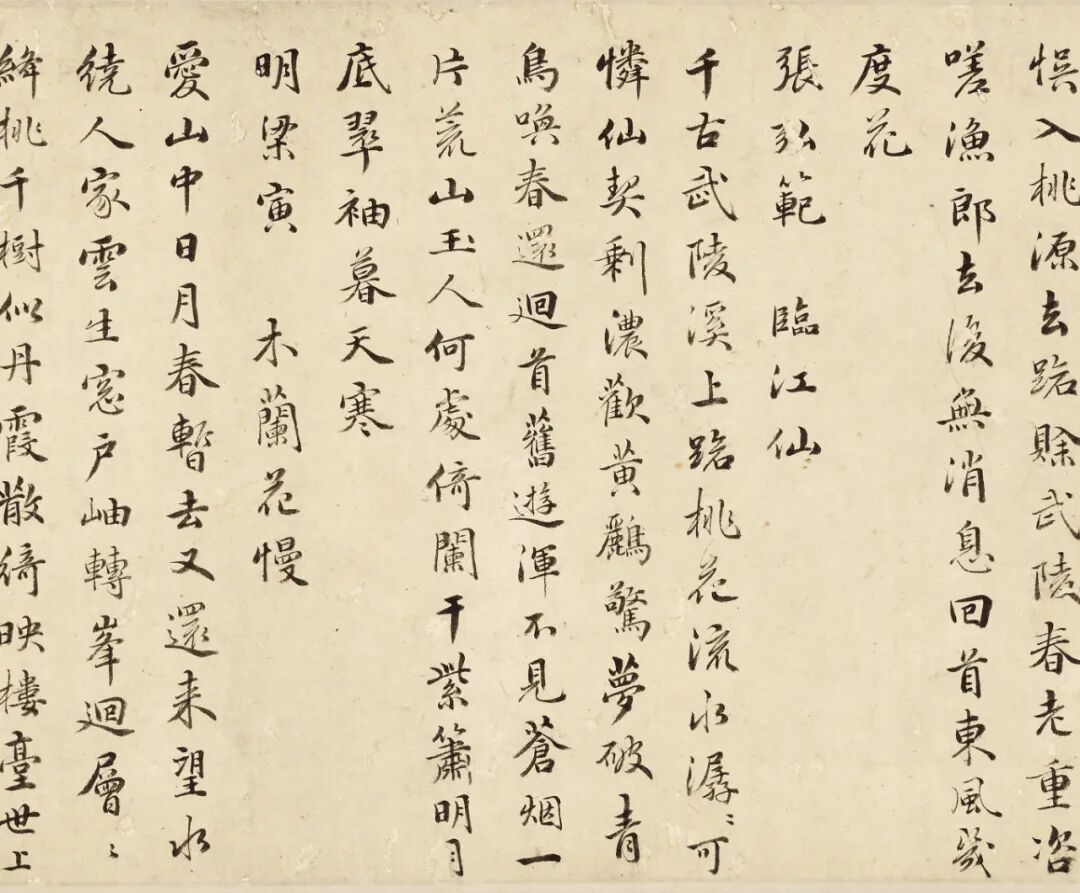 悮入桃源去路賒武陵春老重咨
嗟漁郎去後無消息回首東風幾
度花
張弘範　臨江仙
千古武陵溪上路桃花流水潺〻可
憐仙契剩濃歡黃鸝驚夢破青
鳥喚春還迴首舊遊渾不見蒼烟一
片荒山玉人何處倚闌干紫簫明月
底翠袖暮天寒
明梁寅　木蘭花慢
愛山中日月春暫去又還来望水
繞人家雲生窓戶岫轉峯迴層〻
絳桃千樹似丹霞散綺映樓臺世上